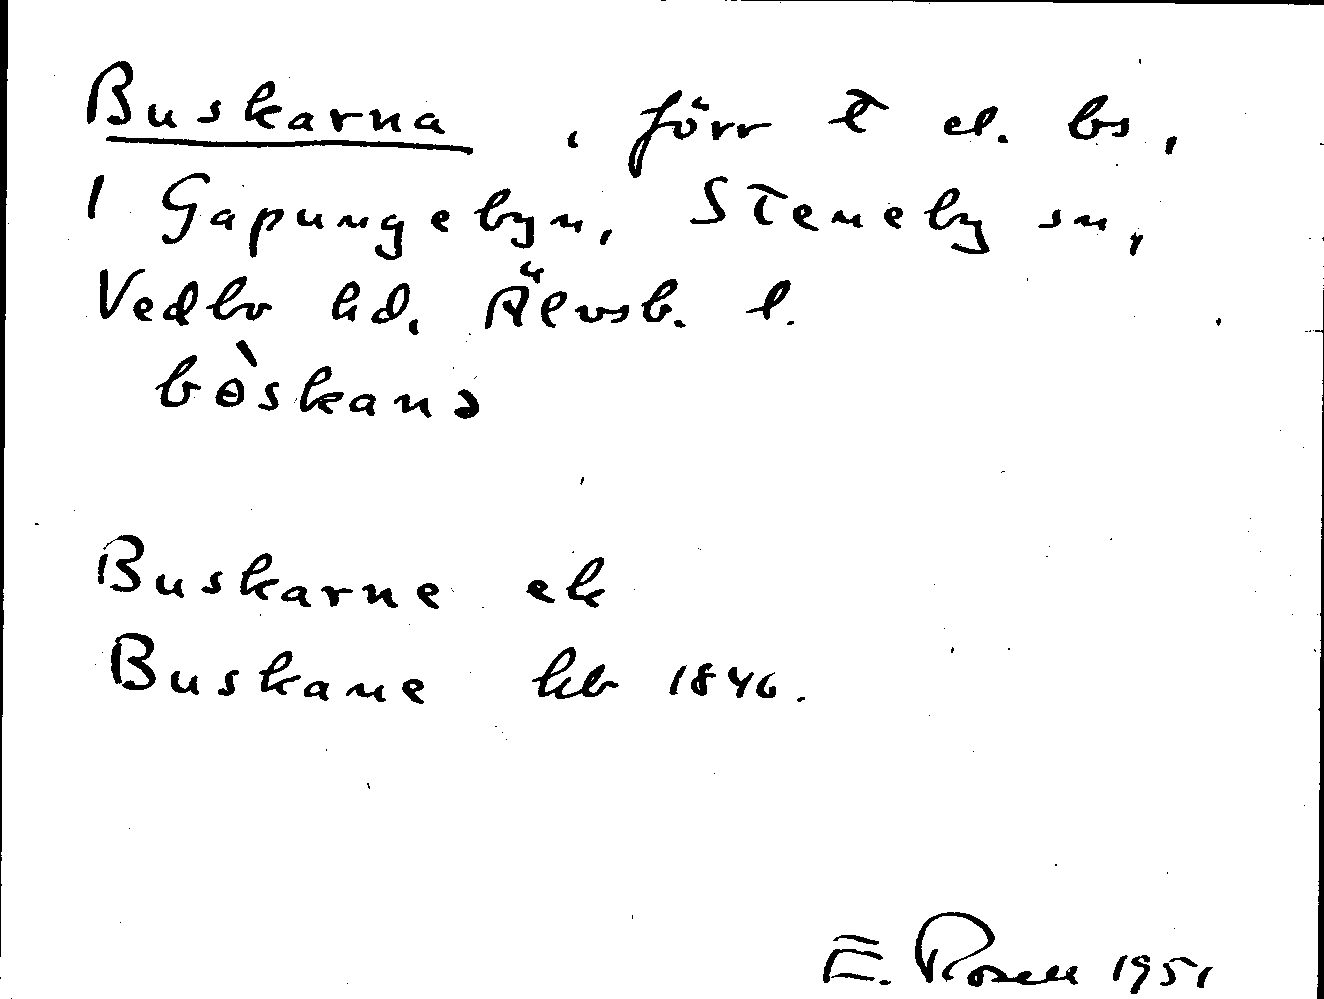 Buskarna, förr t el. bs,
1 Gapungebyn, Steneby sn,
Vedbo hd, Älvsb. l.
bɵ̀skanə
Buskarne ek
Buskane kb 1846.
E. Rosell 1951